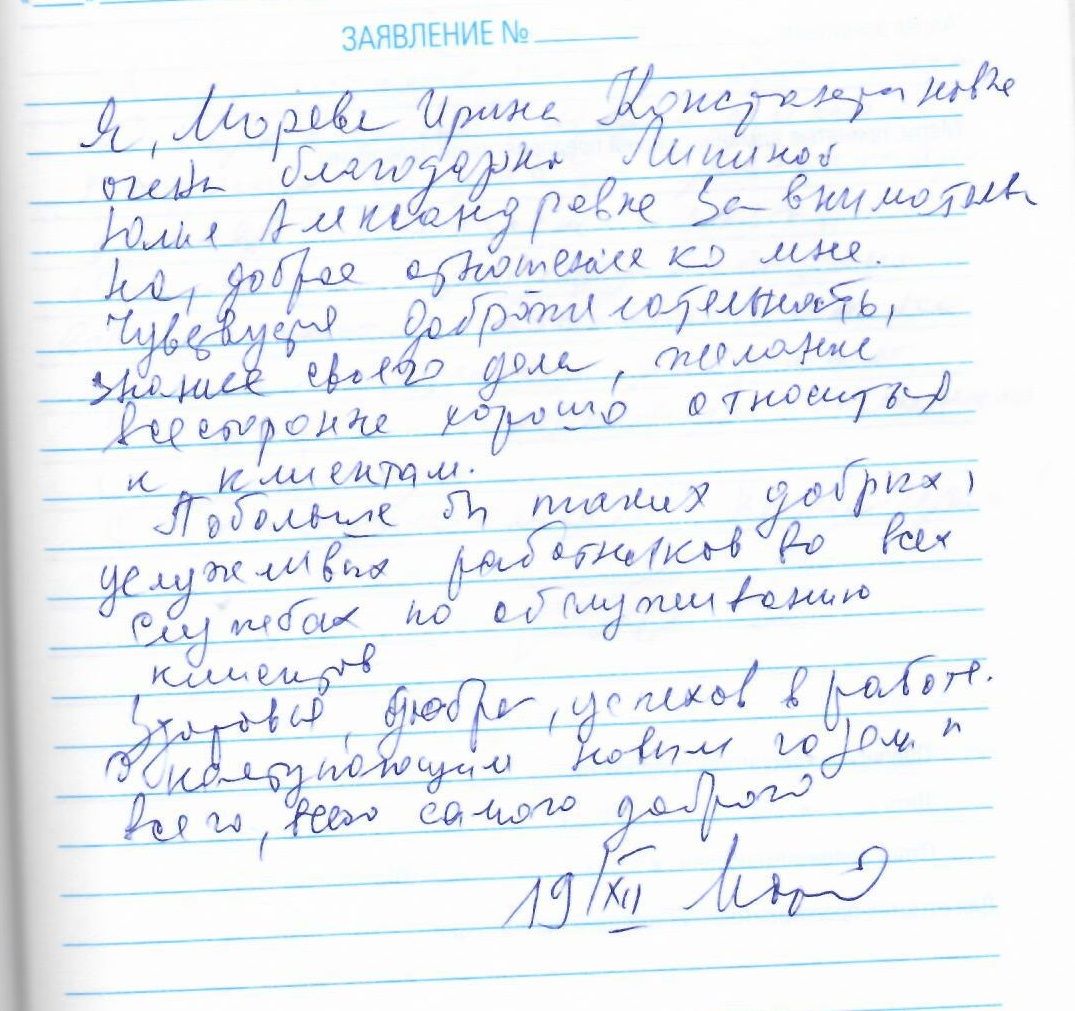 ЗАЯВЛЕНИЕ №
Я, Морева Ирина Константиновна
очень благодарна Липиной
Юлие Александровне за внимательн
но, доброе отношение ко мне.
Чувствуется доброжелательность,
знание своего дела, желание
всесторонне хорошо относиться
к клиентам.
Побольше бы таких добрых,
услужливых работников во всех
службах по обслуживанию
клиентов
Здоровья, добра, успехов в работе.
С наступающим новым годом и
всего, всего самого доброго
19/XII